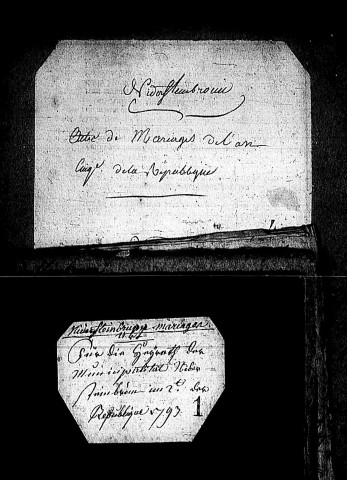 Niedersteinbronn
Acte de Mariages de l'an
cinq de la République
Niedersteinbrunn mariages
Für die Heÿrath der
Municipalitat Nider
Steinbrun im 2t. der
Republique 1793
1